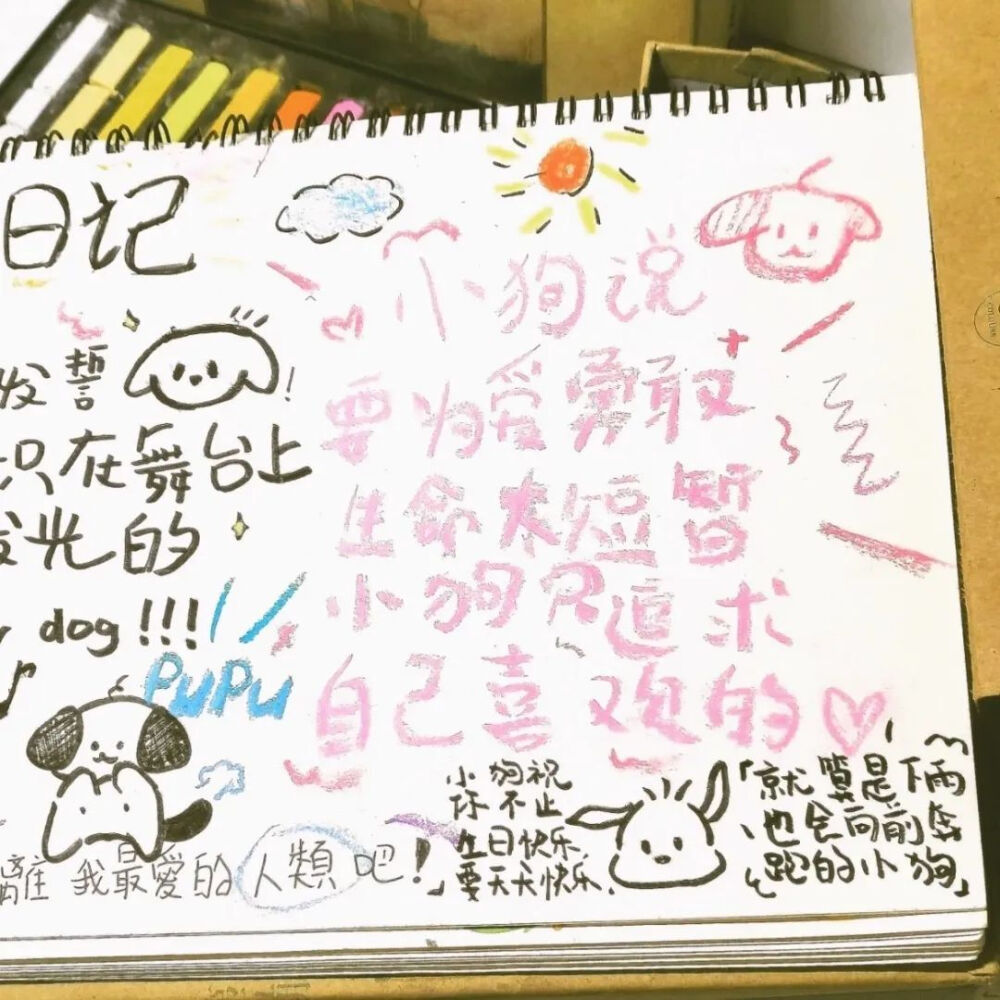 日记
发誓!
只在舞台上
发光的
dog !!!
PUPU
離我最愛的人類吧!」
小狗说
要为爱勇敢
生命太短暂
小狗只追求
自己喜欢的
小狗祝
你不止
生日快乐
要天天快乐
「就算是下雨
也会向前奔
跑的小狗」